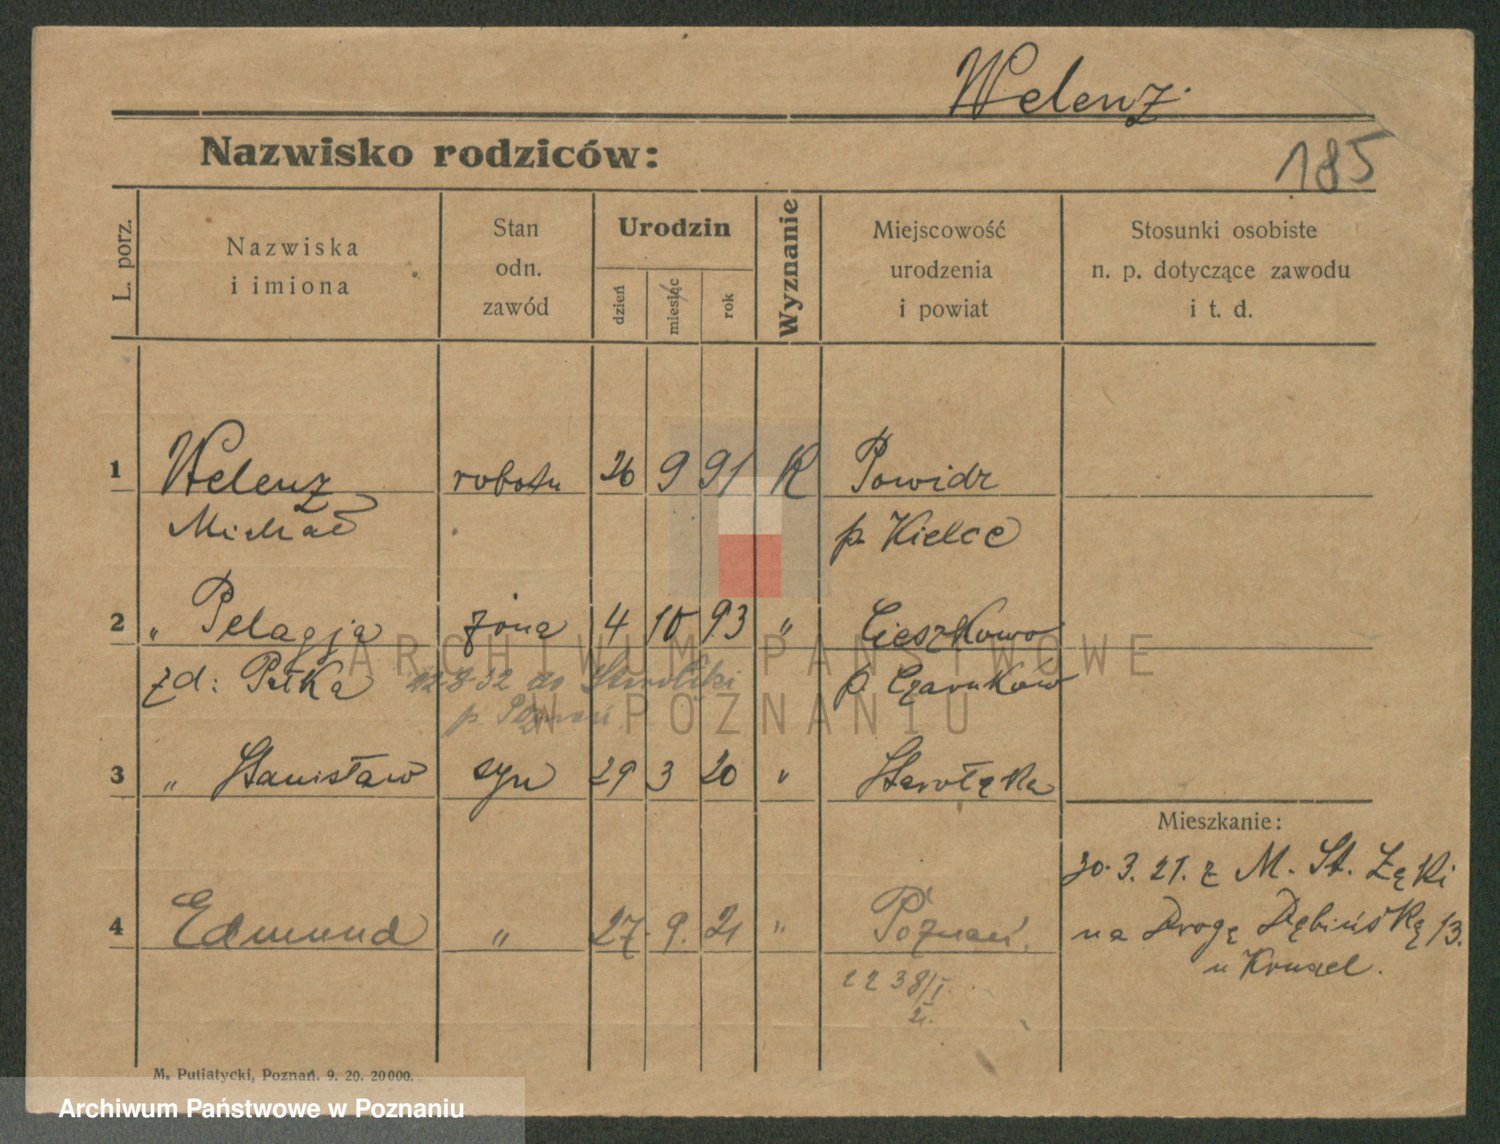 Welenz.
185
Nazwisko rodziców:
L. porz.
Nazwiska
i imiona
Stan
odn.
zawód
Urodzin
dzień
miesiąc
rok
Wyznanie
Miejscowość
urodzenia
i powiat
Stosunki osobiste
n. p. dotyczące zawodu
i t. d.
1 Welenz robotn 26 9 91 K Powidz
Michał p. Kielce
2 " Pelagja żona 4 10 93 " Cieszkowo
zd: Pełka p. Czarnków
12.8.32 do
p. Poznań
3 " Stanisław syn 29 3 20 " Starołęka
Mieszkanie:
30.3.21. z M. St. Łęki
na Drogę Dębińską 13.
u
4 Edmund " 27. 9. 21 " Poznań.
2238/I.
21.
M. Putiatycki, Poznań. 9. 20. 20000.
ARCHIWUM PAŃSTWOWE
W POZNANIU
Archiwum Państwowe w Poznaniu